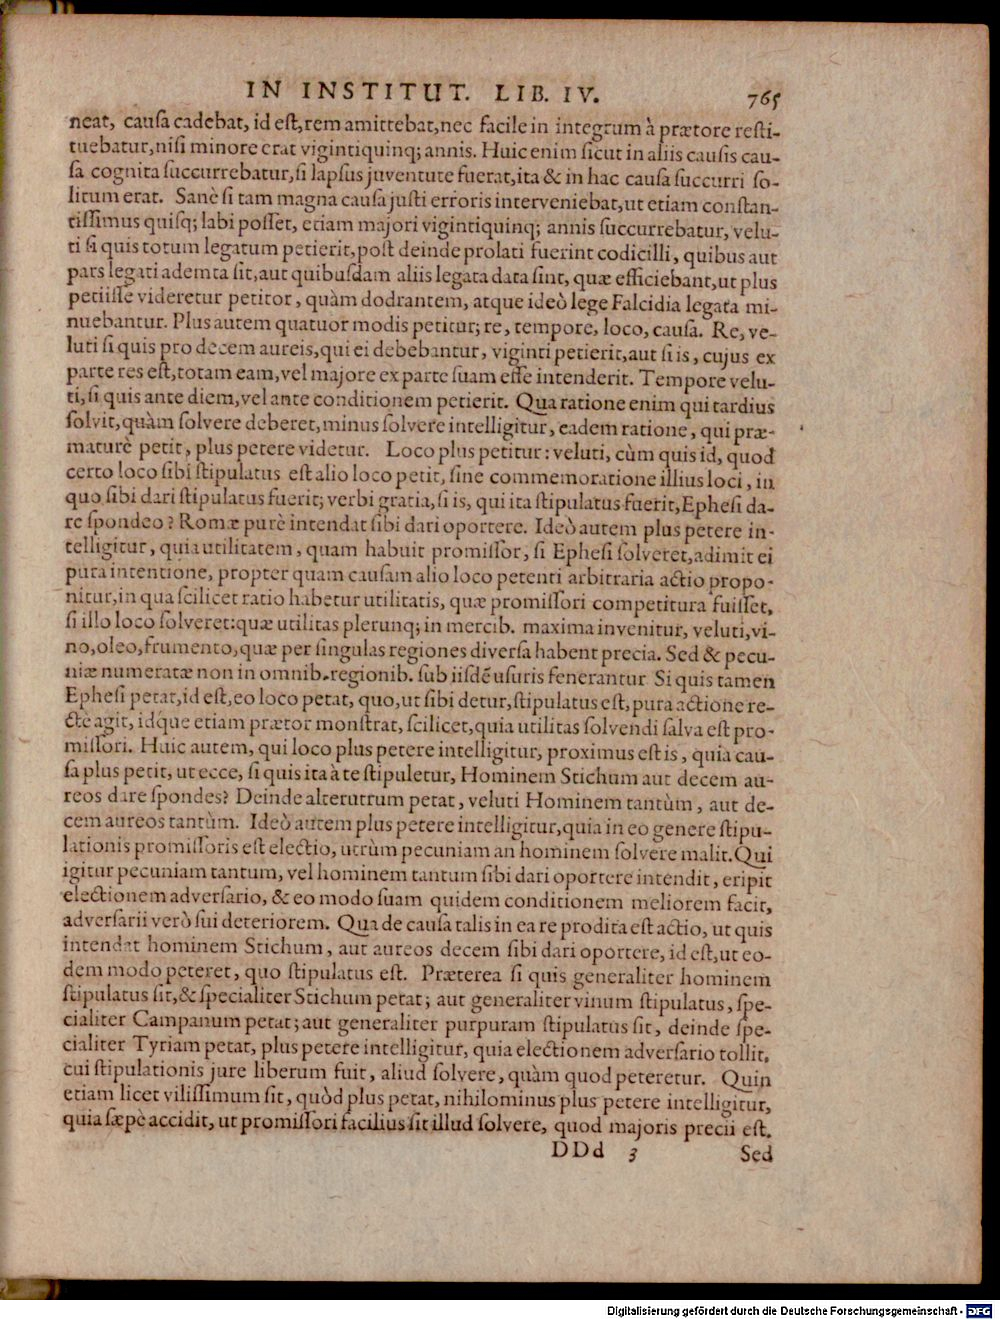 IN INSTITUT. LIB. IV. 765
neat, cauſa cadebat, id eſt, rem amittebat, nec facile in integrum à prætore reſti-
tuebatur, niſi minore erat vigintiquinq; annis. Huic enim ſicut in aliis cauſis cau-
ſa cognita ſuccurrebatur, ſi lapſus juventute fuerat, ita & in hac cauſa ſuccurri ſo-
litum erat. Sanè ſi tam magna cauſa juſti erroris interveniebat, ut etiam conſtan-
tiſſimus quiſq; labi poſſet, etiam majori vigintiquinq; annis ſuccurrebatur, velu-
ti ſi quis totum legatum petierit, poſt deinde prolati fuerint codicilli, quibus aut
pars legati ademta ſit, aut quibuſdam aliis legata data ſint, quæ efficiebant, ut plus
petiiſſe videretur petitor, quàm dodrantem, atque ideò lege Falcidia legata mi-
nuebantur. Plus autem quatuor modis petitur; re, tempore, loco, cauſa. Re, ve-
luti ſi quis pro decem aureis, qui ei debebantur, viginti petierit, aut ſi is, cujus ex
parte res eſt, totam eam, vel majore ex parte ſuam eſſe intenderit. Tempore velu-
ti, ſi quis ante diem, vel ante conditionem petierit. Qua ratione enim qui tardius
ſolvit, quàm ſolvere deberet, minus ſolvere intelligitur, eadem ratione, qui præ-
maturè petit, plus petere videtur. Loco plus petitur: veluti, cùm quis id, quod
certo loco ſibi ſtipulatus eſt alio loco petit, ſine commemoratione illius loci, in
quo ſibi dari ſtipulatus fuerit; verbi gratia, ſi is, qui ita ſtipulatus fuerit, Epheſi da-
re ſpondeo? Romæ purè intendat ſibi dari oportere. Ideò autem plus petere in-
telligitur, quia utilitatem, quam habuit promiſſor, ſi Epheſi ſolveret, adimit ei
pura intentione, propter quam cauſam alio loco petenti arbitraria actio propo-
nitur, in qua ſcilicet ratio habetur utilitatis, quæ promiſſori competitura fuiſſet,
ſi illo loco ſolveret: quæ utilitas plerunq; in mercib. maxima invenitur, veluti, vi-
no, oleo, frumento, quæ per ſingulas regiones diverſa habent precia. Sed & pecu-
niæ numeratæ non in omnib. regionib. ſub iiſdē uſuris fenerantur Si quis tamen
Epheſi petat, id eſt, eo loco petat, quo, ut ſibi detur, ſtipulatus eſt, pura actione re-
ctè agit, idque etiam prætor monſtrat, ſcilicet, quia utilitas ſolvendi ſalva eſt pro-
miſſori. Huic autem, qui loco plus petere intelligitur, proximus eſt is, quia cau-
ſa plus petit, ut ecce, ſi quis ita à te ſtipuletur, Hominem Stichum aut decem au-
reos dare ſpondes? Deinde alterutrum petat, veluti Hominem tantùm, aut de-
cem aureos tantùm. Ideò autem plus petere intelligitur, quia in eo genere ſtipu-
lationis promiſſoris eſt electio, utrùm pecuniam an hominem ſolvere malit. Qui
igitur pecuniam tantum, vel hominem tantum ſibi dari oportere intendit, eripit
electionem adverſario, & eo modo ſuam quidem conditionem meliorem facit,
adverſarii verò ſui deteriorem. Qua de cauſa talis in ea re prodita eſt actio, ut quis
intendat hominem Stichum, aut aureos decem ſibi dari oportere, id eſt, ut eo-
dem modo peteret, quo ſtipulatus eſt. Præterea ſi quis generaliter hominem
ſtipulatus ſit, & ſpecialiter Stichum petat; aut generaliter vinum ſtipulatus, ſpe-
cialiter Campanum petat; aut generaliter purpuram ſtipulatus ſit, deinde ſpe-
cialiter Tyriam petat, plus petere intelligitur, quia electionem adverſario tollit,
cui ſtipulationis jure liberum fuit, aliud ſolvere, quàm quod peteretur. Quin
etiam licet viliſſimum ſit, quòd plus petat, nihilominus plus petere intelligitur,
quia ſæpè accidit, ut promiſſori facilius ſit illud ſolvere, quod majoris precii eſt.
DDd 3 Sed
Digitalisierung gefördert durch die Deutsche Forschungsgemeinschaft - DFG